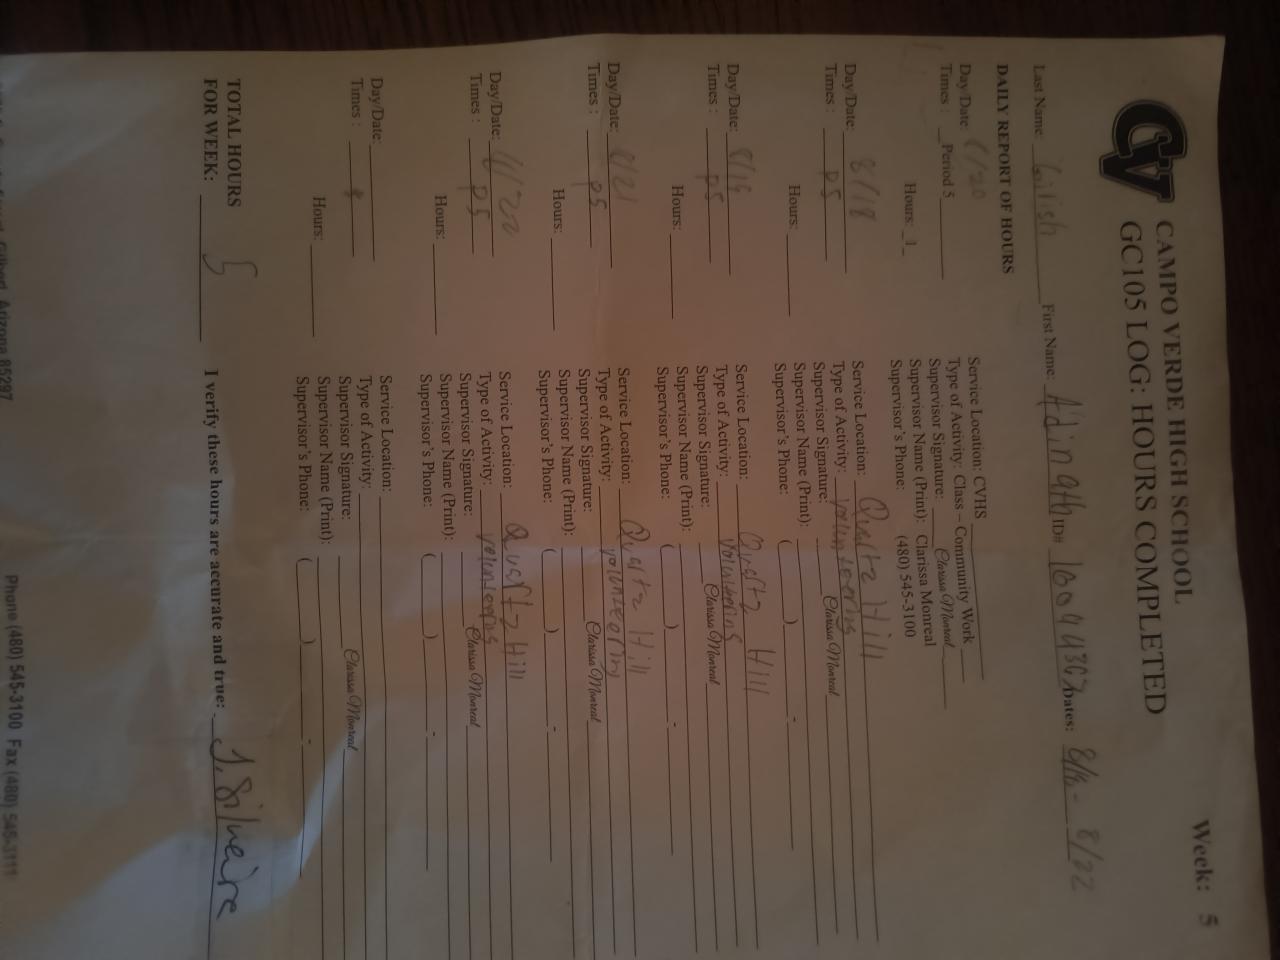 CAMPO VERDE HIGH SCHOOL
GC105 LOG: HOURS COMPLETED
Week: 5
CV
Last Name: Girish First Name: Adinath ID# Dates: 8/18 - 8/22
DAILY REPORT OF HOURS
Day/Date: 8/20 Service Location: CVHS
Times : Period 5 Type of Activity: Class – Community Work
Supervisor Signature: Clarissa Monreal
Hours: 1 Supervisor Name (Print): Clarissa Monreal
Supervisor's Phone: (480) 545-3100
Day/Date: 8/18 Service Location: Quartz Hill
Times : P5 Type of Activity: volunteering
Supervisor Signature: Clarissa Monreal
Hours: Supervisor Name (Print):
Supervisor's Phone: ( ) -
Day/Date: 8/19 Service Location: Quartz Hill
Times : P5 Type of Activity: volunteering
Supervisor Signature: Clarissa Monreal
Hours: Supervisor Name (Print):
Supervisor's Phone: ( ) -
Day/Date: 8/21 Service Location: Quartz Hill
Times : P5 Type of Activity: volunteering
Supervisor Signature: Clarissa Monreal
Hours: Supervisor Name (Print):
Supervisor's Phone: ( ) -
Day/Date: 8/22 Service Location: Quartz Hill
Times : P5 Type of Activity: volunteering
Supervisor Signature: Clarissa Monreal
Hours: Supervisor Name (Print):
Supervisor's Phone: ( ) -
Day/Date: Service Location:
Times : Type of Activity:
Supervisor Signature: Clarissa Monreal
Hours: Supervisor Name (Print):
Supervisor's Phone: ( ) -
TOTAL HOURS
FOR WEEK: 5 I verify these hours are accurate and true: J. Silveira
Gilbert, Arizona 85297 Phone (480) 545-3100 Fax (480) 545-3111